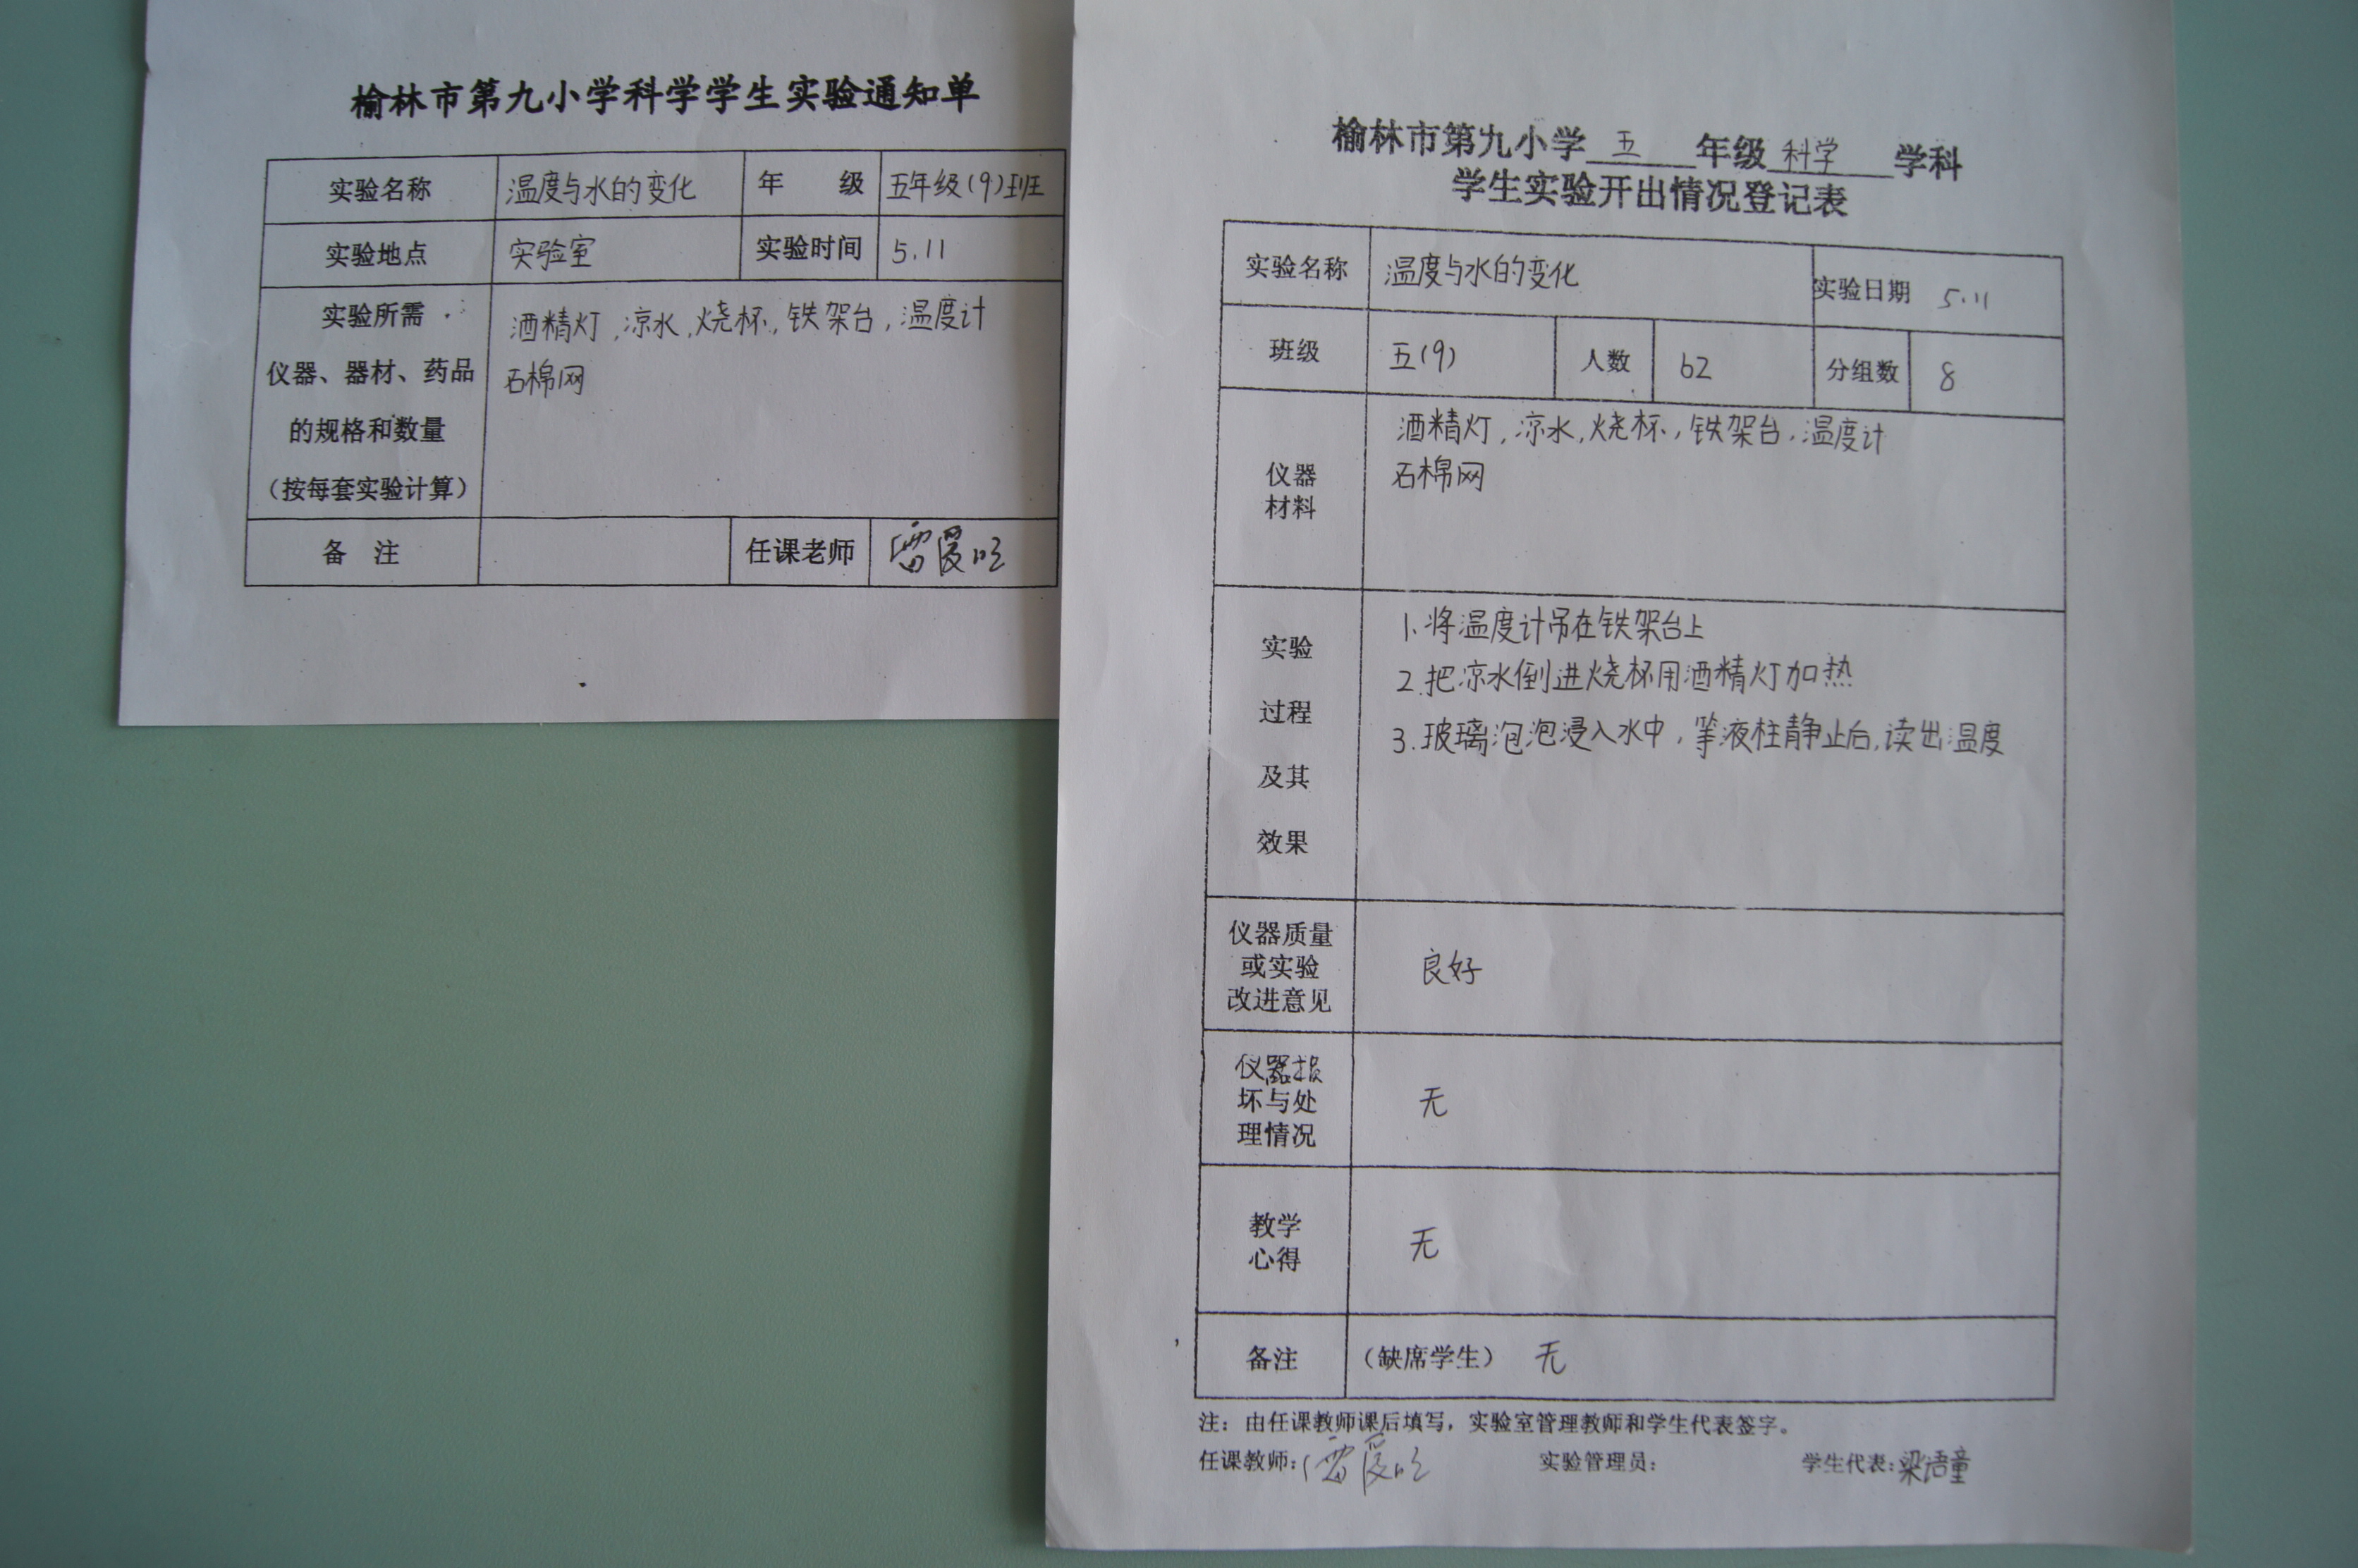 榆林市第九小学科学学生实验通知单
实验名称 温度与水的变化 年 级 五年级(9)班
实验地点 实验室 实验时间 5.11
实验所需
仪器、器材、药品
的规格和数量
（按每套实验计算）
酒精灯,凉水,烧杯,铁架台,温度计
石棉网
备 注 任课老师
榆林市第九小学 五 年级 科学 学科
学生实验开出情况登记表
实验名称 温度与水的变化 实验日期 5.11
班级 五(9) 人数 62 分组数 8
仪器
材料
酒精灯,凉水,烧杯,铁架台,温度计
石棉网
实验
过程
及其
效果
1.将温度计吊在铁架台上
2.把凉水倒进烧杯用酒精灯加热
3.玻璃泡泡浸入水中,等液柱静止后,读出温度
仪器质量
或实验
改进意见
良好
仪器损
坏与处
理情况
无
教学
心得
无
备注 （缺席学生） 无
注：由任课教师课后填写，实验室管理教师和学生代表签字。
任课教师: 实验管理员: 学生代表:梁语童